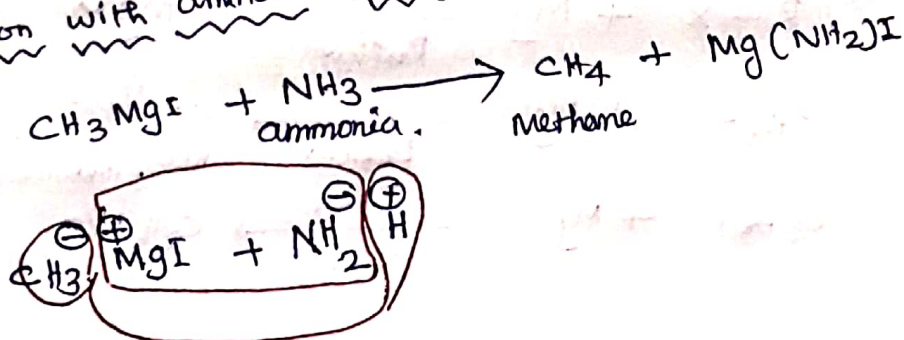 on with
CH3MgI + NH3 → CH4 + Mg(NH2)I
ammonia. Methane
⊖ ⊕ ⊖ ⊕
CH3 MgI + NH2 H